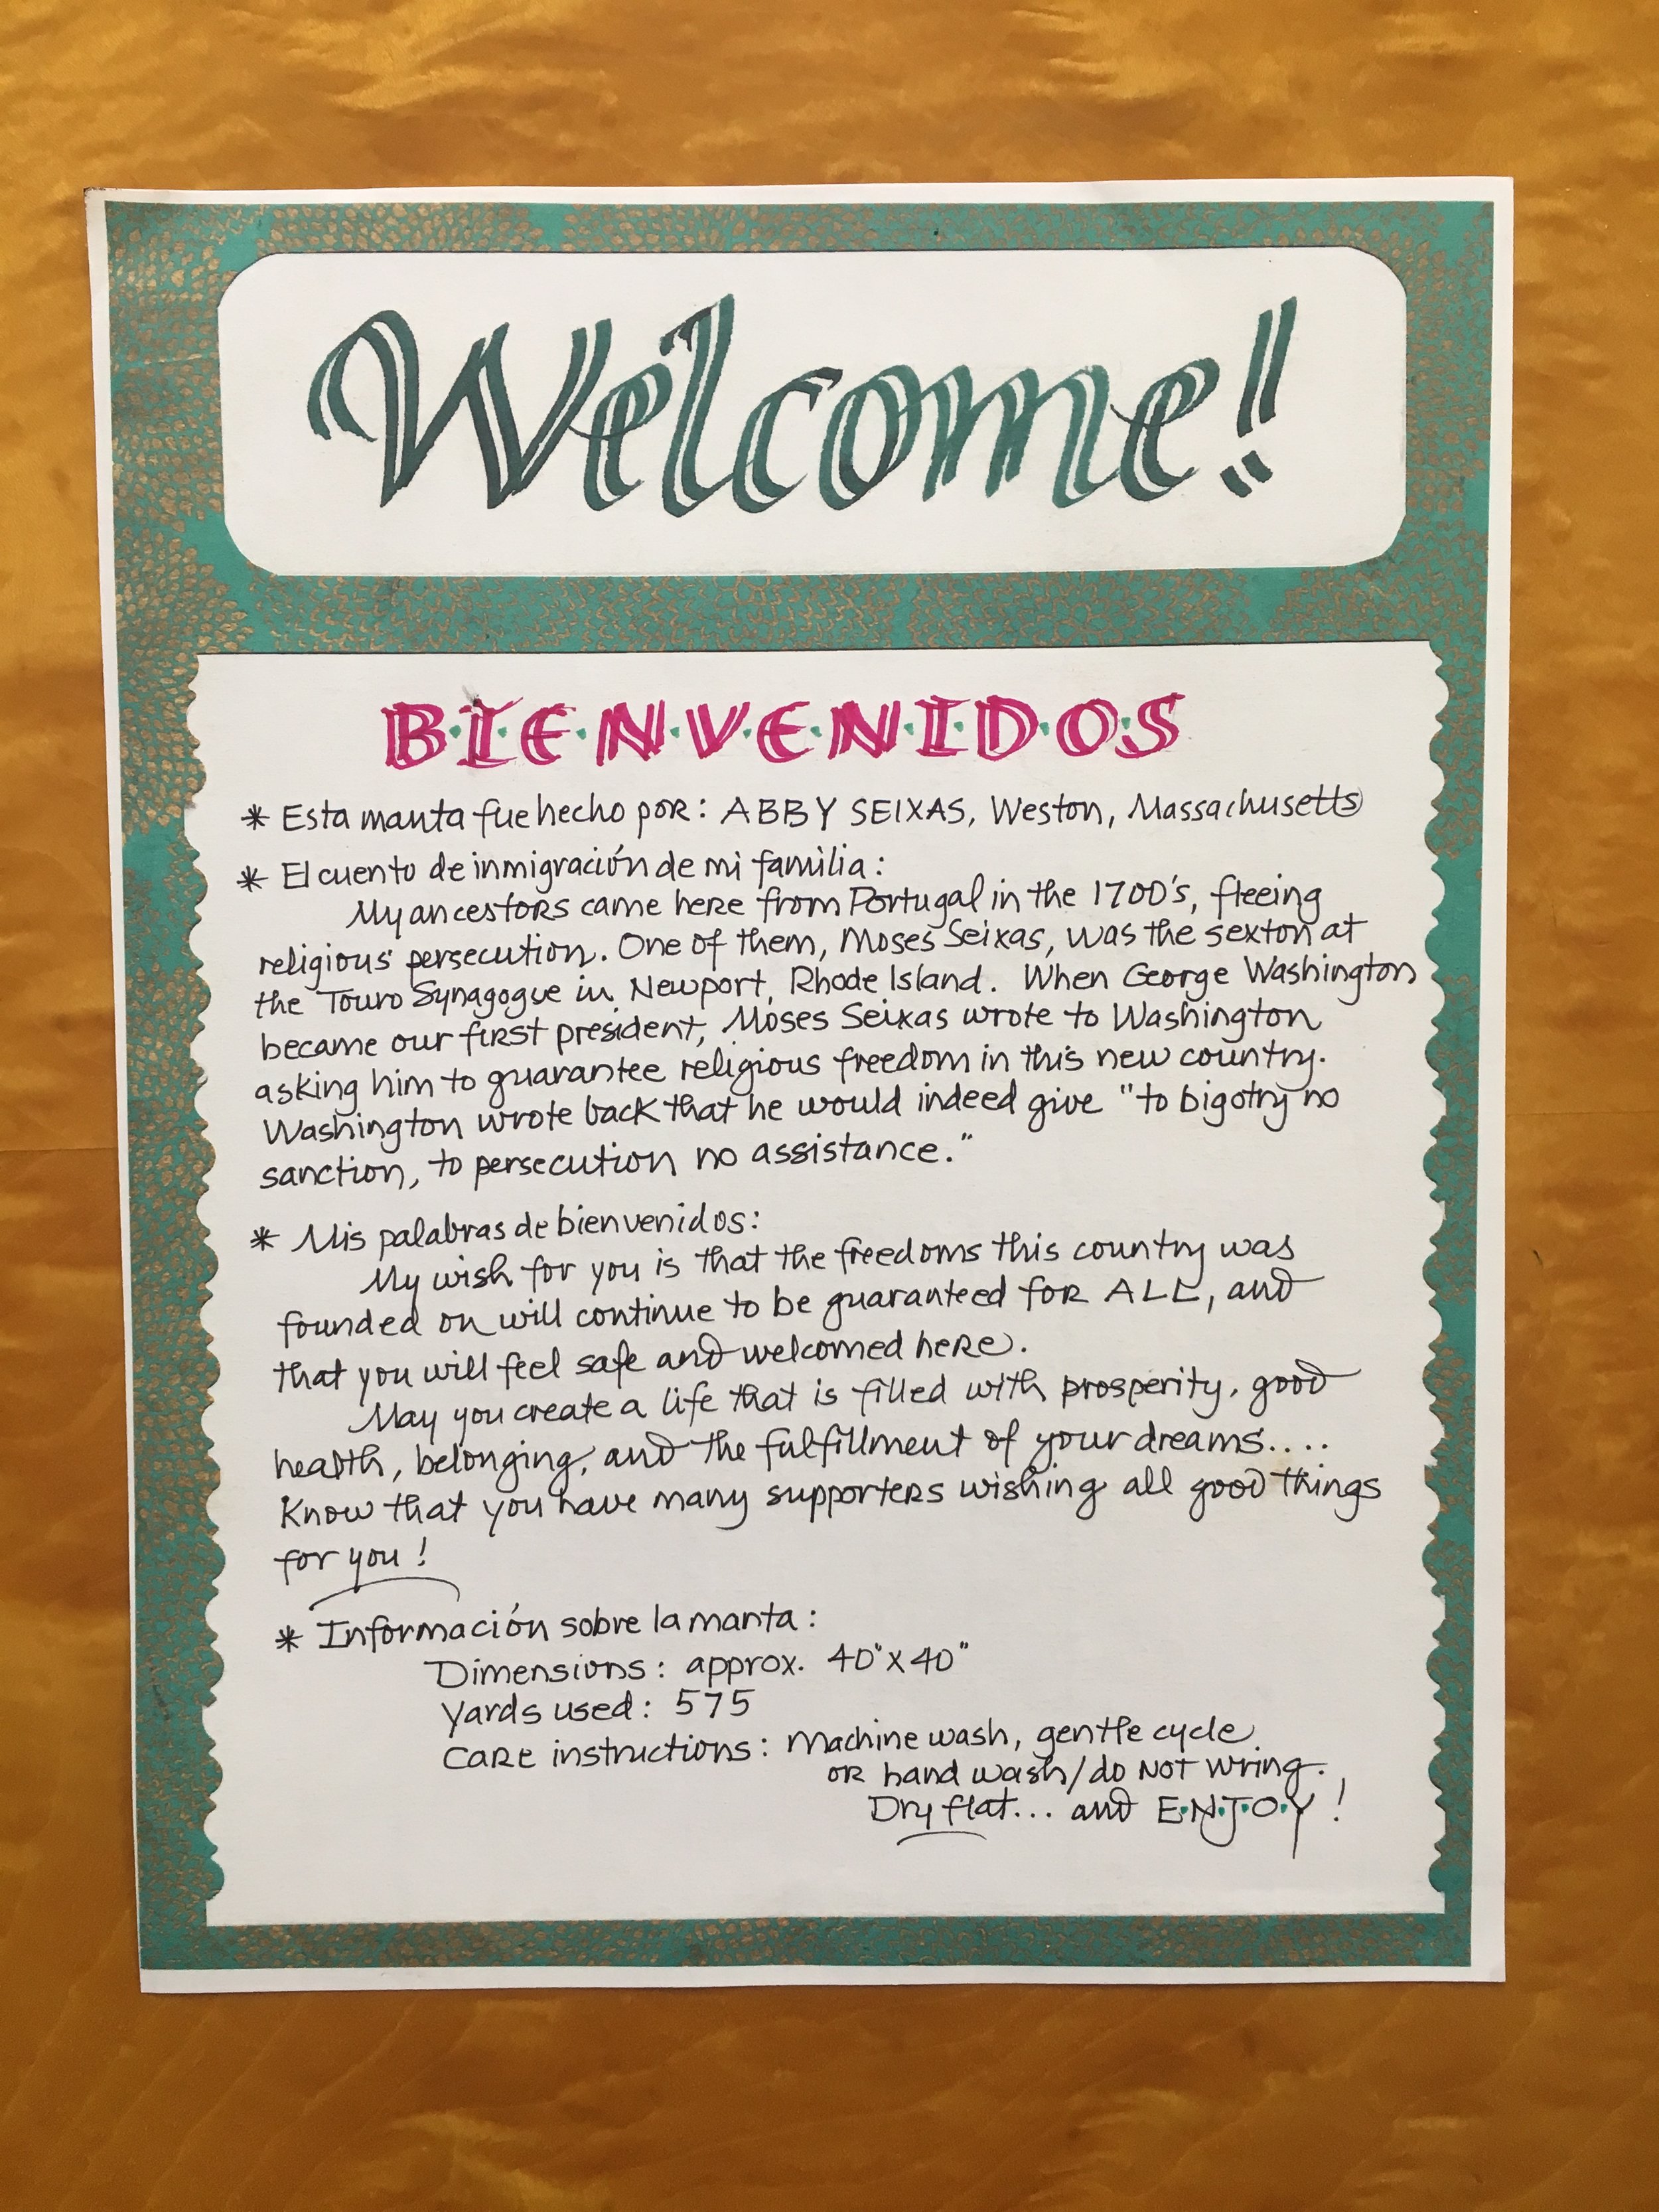 Welcome!
B·I·E·N·V·E·N·I·D·O·S
* Esta manta fue hecho por: ABBY SEIXAS, Weston, Massachusetts
* El cuento de inmigración de mi familia:
My ancestors came here from Portugal in the 1700's, fleeing
religious persecution. One of them, Moses Seixas, was the sexton at
the Touro Synagogue in Newport, Rhode Island. When George Washington
became our first president, Moses Seixas wrote to Washington
asking him to guarantee religious freedom in this new country.
Washington wrote back that he would indeed give "to bigotry no
sanction, to persecution no assistance."
* Mis palabras de bienvenidos:
My wish for you is that the freedoms this country was
founded on will continue to be guaranteed for ALL, and
that you will feel safe and welcomed here.
May you create a life that is filled with prosperity, good
health, belonging, and the fulfillment of your dreams....
Know that you have many supporters wishing all good things
for you!
* Información sobre la manta:
Dimensions: approx. 40"x40"
Yards used: 575
Care instructions: Machine wash, gentle cycle
or hand wash/do NOT wring.
Dry flat... and E·N·J·O·Y!